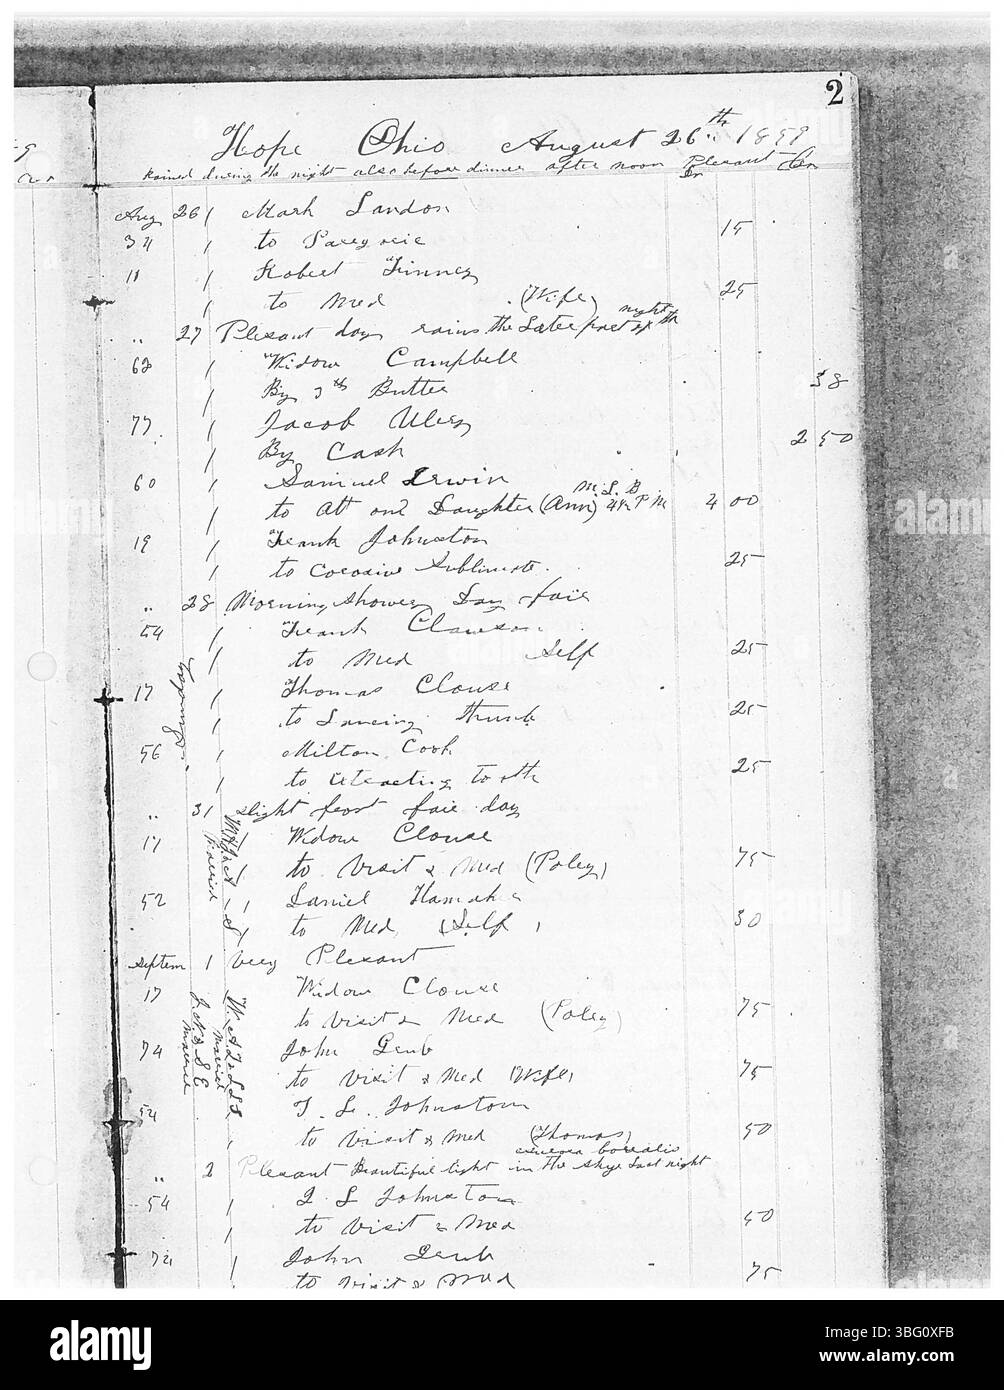 2
Hope Ohio August 26th 1859
rained during the night also before dinner after noon Plesant
Dr
Aug 26 Mark Landon
34 to Paregoric 15
11 Robert Finney
to Med (Wife) 25
" 27 Plesant day rains the Later part of the night
62 Widow Campbell
By Butter 38
77 Jacob Ulery
By Cash 2 50
60 Samuel Irwin
to Att one Daughter (Ann) M. L. B 4 P M 4 00
19 Frank Johnston
to Cocosive Sublimate. 25
" 28 Morning showery Day fair
54 Frank Clawson
to Med Self 25
17 Thomas Clouse
to Lancing thumb 25
56 Milton Cook
to Extracting tooth 25
" 31 slight frost fair day
17 Widow Clouse
to Visit & Med (Poley) 75
52 Daniel Hamaker
to Med (Self) 30
Septem 1 Very Plesant
17 Widow Clouse
to Visit & Med (Poley) 75
74 John Grub
to Visit & Med (Wife) 75
54 T. L. Johnston
to Visit & Med (Thomas) 50
" 2 Plesant Beautiful light in the skye Last night
borealis
54 T L Johnston
to Visit & Med 50
74 John Grub
to Visit & Med 75
alamy
Image ID: 3BG0XFB
www.alamy.com